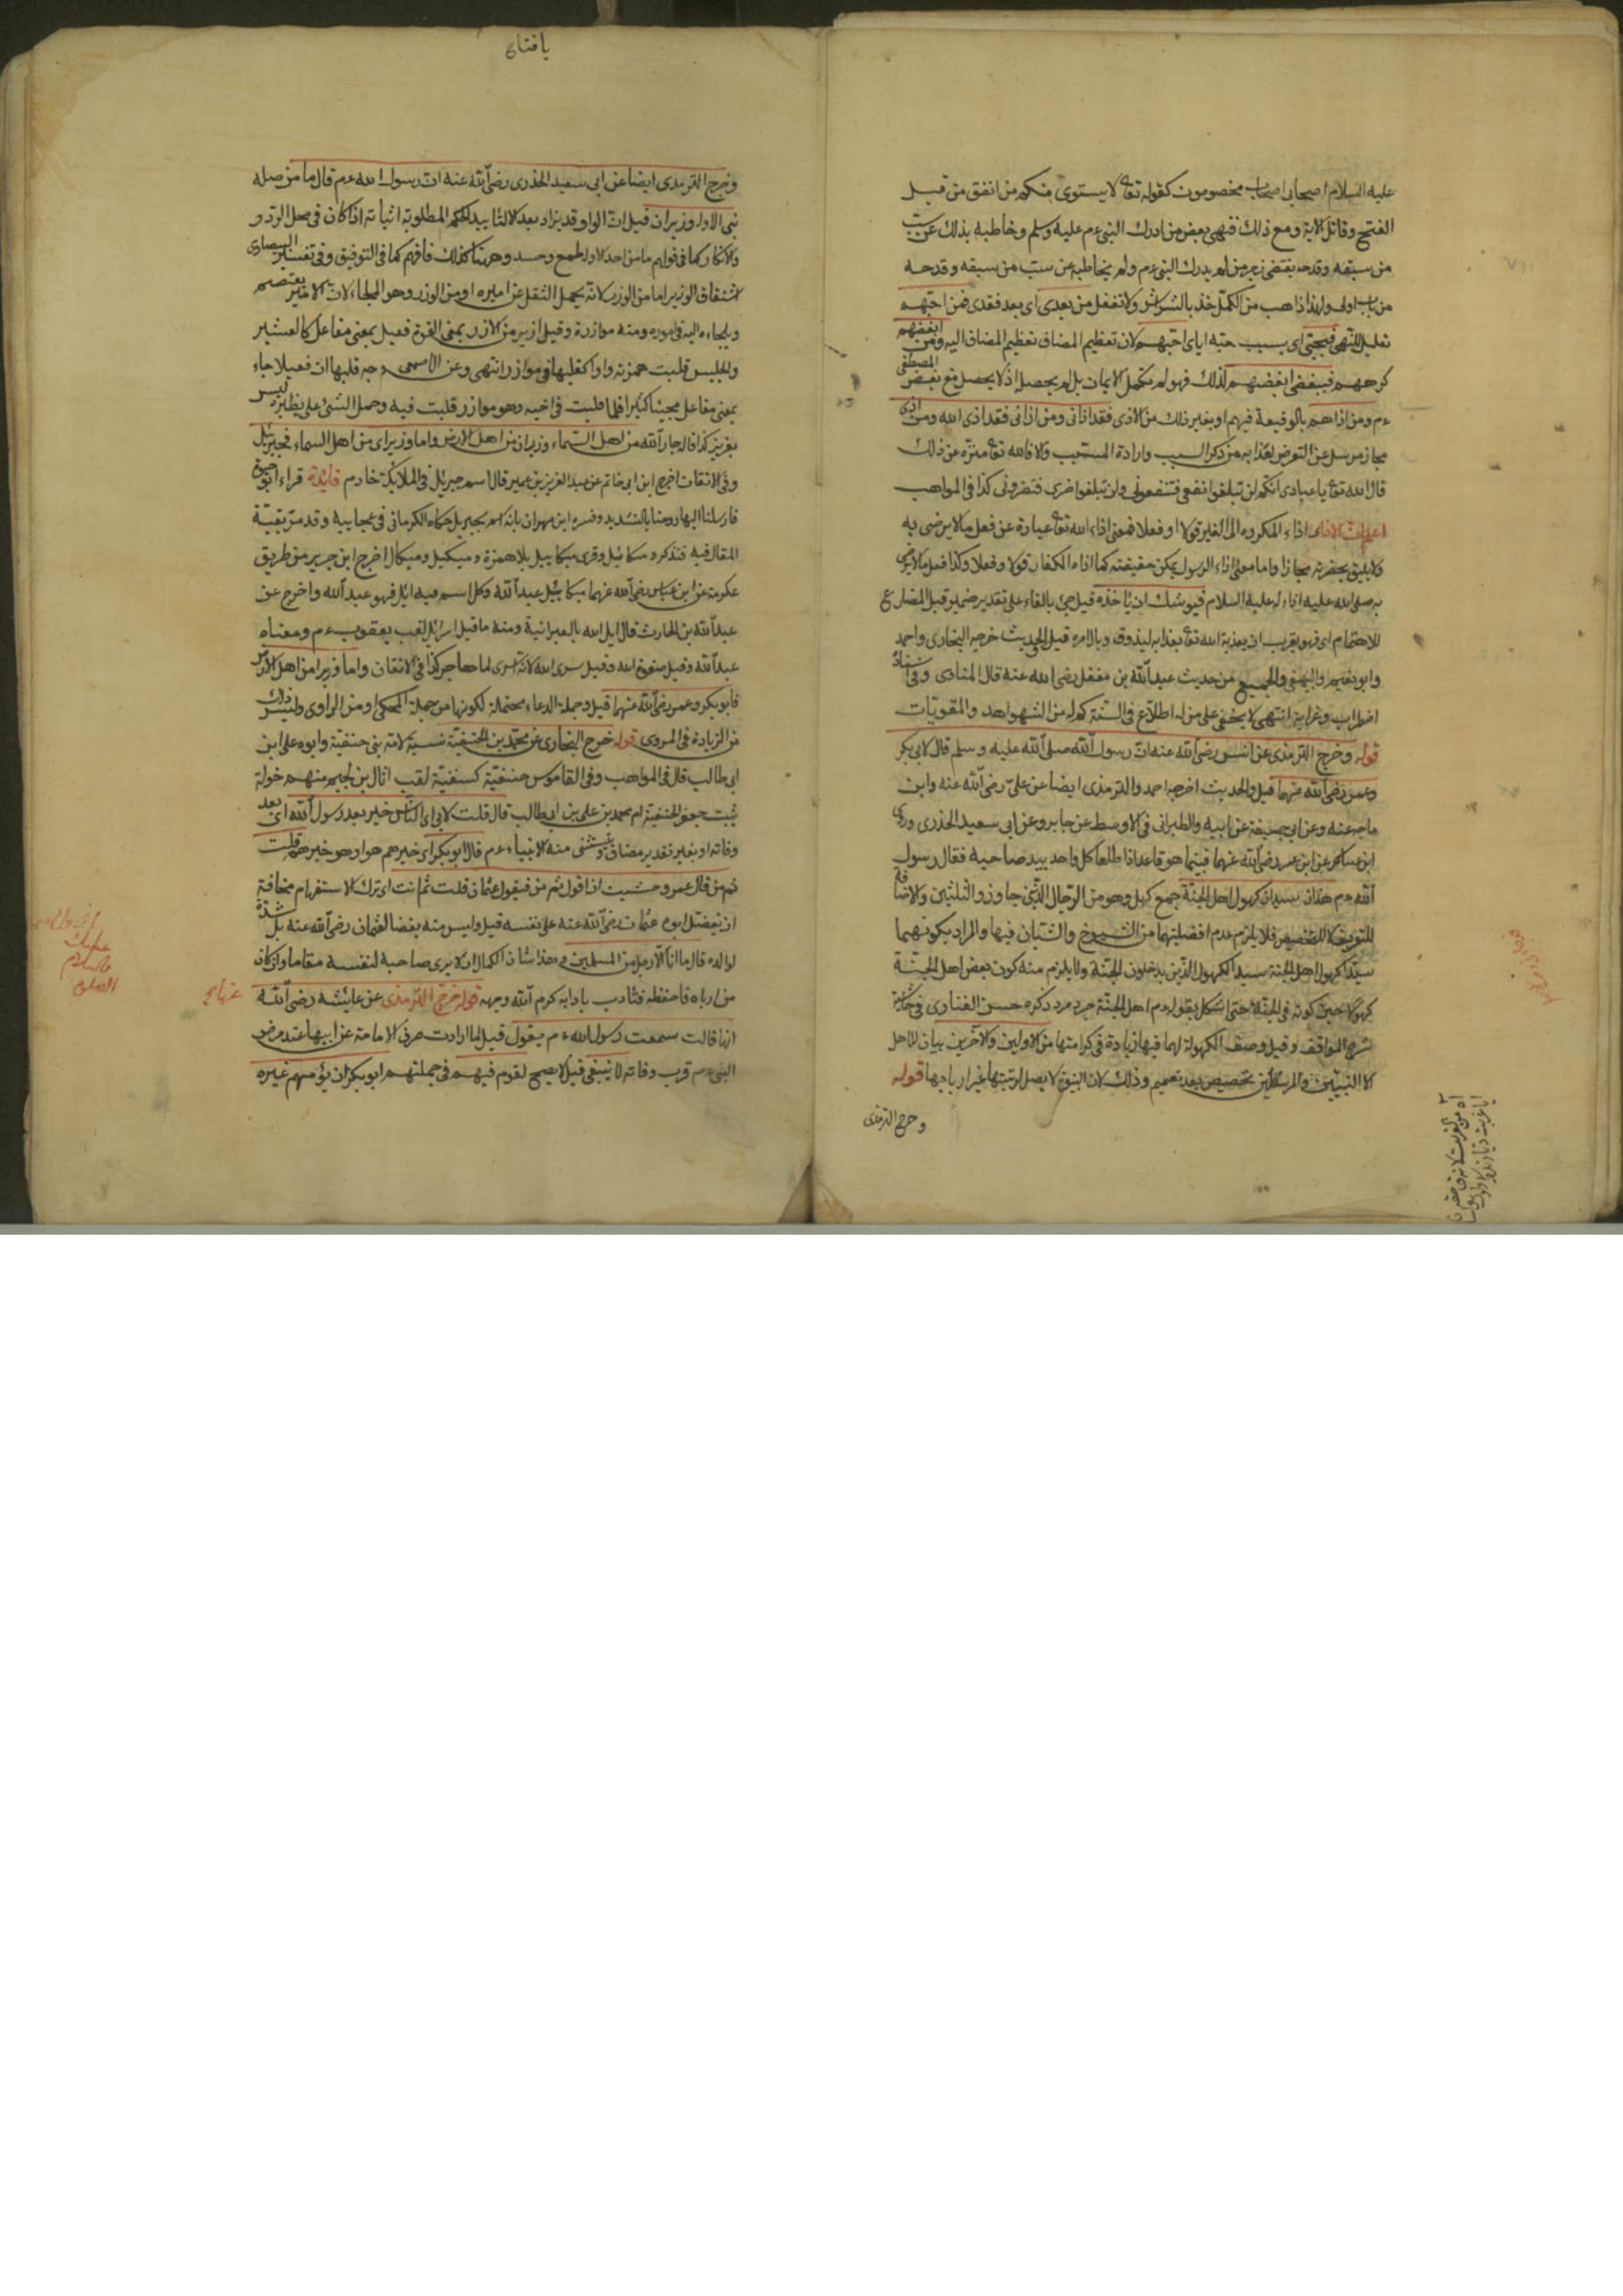 عليه السلام اصحابى اصحاب مخصوصون كقوله تع لا يستوى منكم من انفق من قبل
الفتح وقاتل الاية ومع ذلك فنهى بعض من ادرك النبى ءم عليه وسلم وخاطبه بذلك عن سب
من سبقه وقدحه يقتضى زجر من لم يدرك النبى ءم ولم يخاطبه عن سب من سبقه وقدحه
من باب اولى ولهذا ذاهب من الكمل خذ بالشراشر ولا تغفل من بعدى اى بعد فقدى فمن احبهم
تعليل للنهى فبحبى اى بسبب حبه اياى احبهم لان تعظيم المضاف تعظيم المضاف اليه ومن ابغضهم
كرههم فببغضى ابغضهم لذلك فهو لم يكمل الايمان بل لم يحصل اذ لا يحصل مع بغض المصطفى
ءم ومن اذاهم بالوقيعة فيهم او بغير ذلك من الاذى فقد اذانى ومن اذانى فقد اذى الله ومن اذى
مجاز مرسل عن التعرض لعذابه من ذكر السبب وارادة المسبب والا فالله تع منزه عن ذلك
قال الله تع يا عبادى انكم لن تبلغوا نفعى فتنفعونى ولن تبلغوا ضرى فتضرونى كذا فى المواهب
اعلم ان الاذى اذاء المكروه الى الغير قولا او فعلا فمعنى اذاء الله تع عبارة عن فعل ما لا يرضى به
ولا يليق بحضرته مجازا واما معنى اذاء الرسول يمكن حقيقته كما اذاه الكفار قولا وفعلا وكذا فعل ما لا يرضى
به صلى الله عليه اذاء له عليه السلام فيوشك ان ياخذه قيل جئ بالفاء على تقدير ضمير قبل المضارع
للاهتمام اى فهو يقرب ان يعذبه الله تع بعذابه ليذوق وبال امره قيل الحديث خرجه البخارى واحمد
وابو نعيم والبيهقى والجميع من حديث عبد الله بن مغفل رضى الله عنه قال المناوى وفى اسناده
اضطراب وغرابة انتهى لا يخفى على من له اطلاع فى السنة كم له من الشواهد والمقويات
قوله وخرج الترمذى عن انس رضى الله عنه ان رسول الله صلى الله عليه وسلم قال لابى بكر
وعمر رضى الله عنهما قيل والحديث اخرجه احمد والترمذى ايضا عن على رضى الله عنه وابن
ماجه عنه وعن ابى جحيفة عن ابيه والطبرانى فى الاوسط عن جابر وعن ابى سعيد الخدرى وروى
ابن عساكر عن ابن عمر رضى الله عنهما فبينما هو قاعد اذا طلعا كل واحد بيد صاحبه فقال رسول
الله ءم هذان سيدان كهول اهل الجنة جمع كهل وهو من الرجال الذين جاوزو الثلثين والاضافة
للتوضيح لا للتخصيص فلا يلزم عدم افضليتهما من الشيوخ والشبان فيها والمراد بكونهما
سيدا كهول اهل الجنة سيدا الكهول الذين يدخلون الجنة ولا يلزم منه كون بعض اهل الجنة
كهولا حين كونه فى الجنة حتى اشكل بقوله ءم اهل الجنة جرد مرد ذكره حسن الفنارى فى حاشية
شرح المواقف وقيل وصف الكهولة لهما فيها زيادة فى كرامتهما من الاولين والآخرين بيان للاهل
الا النبيين والمرسلين تخصيص بعد تعميم وذلك لان النبوة لا يصل لرتبتها غير اربابها قوله
وخرج الترمذى
يا فتاح
وخرج الترمذى ايضا عن ابى سعيد الخدرى رضى الله عنه ان رسول الله ءم قال ما من صله
نبى الا وله وزيران قيل ان الواو قد يزاد بعد الا لتاييد الحكم المطلوبة اثباته اذا كان فى محل الرد و
والانكار كما فى قولهم ما من احد الا وله طمع وحسد وههنا كذلك فافهم كما فى التوفيق وفى تفسير البيضاوى
اشتقاق الوزير اما من الوزر لانه يحمل الثقل عن اميره او من الوزر وهو الملجاء لان الامير يعتصم به
ويلجاء اليه فى اموره ومنه موازرة وقيل ازير من الازر بمعنى القوة فعيل بمعنى مفاعل كالعشير
والجليس قلبت همزته واوا كقلبها فى موازر انتهى وعن الاصمعى وجه قلبها ان فعيلا جاء
بمعنى مفاعل مجيئا كثيرا فلما قلبت فى اخيه وهو موازر قلبت فيه وحمل الشئ على نظيره ليس
بعزيز كذا قال جار الله من اهل السماء وزيران من اهل الارض واما وزيراى من اهل السماء فجبرئيل
وفى الاتقان اخرج ابن ابى حاتم عن عبد العزيز بن عمير قال اسم جبرئيل فى الملائكة خادم فائدة قراء ابو حيوة
فارسلنا اليها روحنا بالتشديد وفسره ابن مهران بانه اسم لجبريل حكاه الكرمانى فى عجايبه وقد مر بقية
المقال فيه فتذكره ميكائيل وقرى ميكاييل بلا همزة وميكيل وميكال اخرج ابن جرير من طريق
عكرمة عن ابن عباس رضى الله عنهما ميكائيل عبد الله وكل اسم فيه ائل فهو عبد الله واخرج عن
عبد الله بن الحارث قال ايل الله بالعبرانية ومنه ما قيل اسرائيل لقب يعقوب ءم ومعناه
عبد الله وقيل صفوة الله وقيل سرى الله لانه اسرى لما هاجر كذا فى الاتقان واما وزيراى من اهل الارض
فابو بكر وعمر رضى الله عنهما قيل وجملة الدعاء محتملة لكونها من جملة المحكى او من الراوى وليس ذلك
من الزيادة فى المروى قوله خرج البخارى عن محمد بن الحنفية نسبة لامه بنى حنفية وابوه على ابن
ابى طالب قال فى المواهب وفى القاموس حنفية كسفنية لقب اثال بن لجيم منهم خولة
بنت جعفر الحنفية ام محمد بن على بن ابى طالب قال قلت لابى اى الناس خير بعد رسول الله اى بعد
وفاته او بغير تقدير مضاف يستثنى منه الانبياء ءم قال ابو بكر اى خيرهم هو او هو خيرهم قلت
ثم من قال عمر وخشيت ان اقول ثم من فيقول عثمان قلت ثم انت اى ترك الاستفهام مخافة
ان يفضل ابوه عثمان رضى الله عنه على نفسه قيل وليس منه بغضا لعثمان رضى الله عنه بل
لوالده قال ما انا الا رجل من المسلمين فى هذا شان الكمال ان لا يرى صاحبه لنفسه مقاما وان كان
من اربابه فاحفظه فتادب بادابه كرم الله وجهه قوله خرج الترمذى عن عائشه رضى الله
عنها
انها قالت سمعت رسول الله ءم يقول قيل لما ارادت صرف الامامة عن ابيها عند مرض
النبى ءم قرب وفاته لا ينبغى قيل لا يصح لقوم فيهم فى جملتهم ابو بكر ان يؤمهم غيره